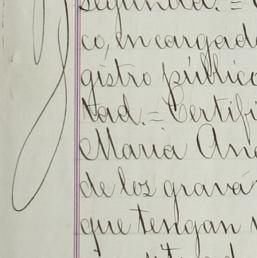 segunda. =
co, encargado
gistro público
tad. = Certifi
Maria An
de los gravá
que tengan